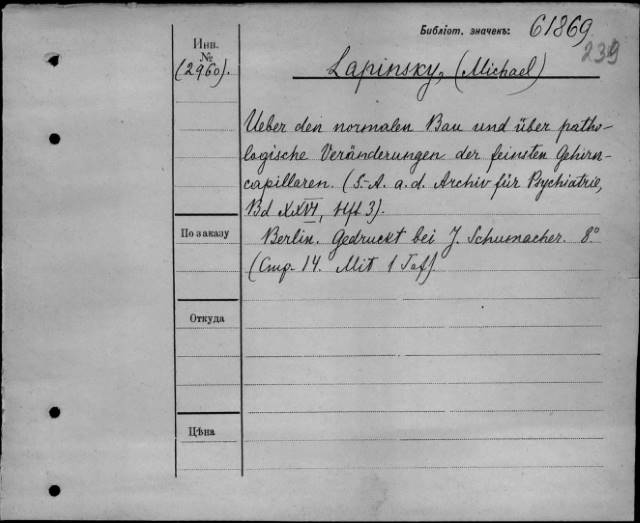 Библіот. значекъ: 61869
239
Инв.
№
(2960).
Lapinsky, (Michael)
Ueber den normalen Bau und über patho-
logische Veränderungen der feinsten Gehirn-
capillaren. (S.-A. a. d. Archiv für Psychiatrie,
Bd XXVI, Hft 3).
По заказу
Berlin. Gedruckt bei J. Schumacher. 8°
(Стр. 14. Mit 1 Taf).
Откуда
Цѣна